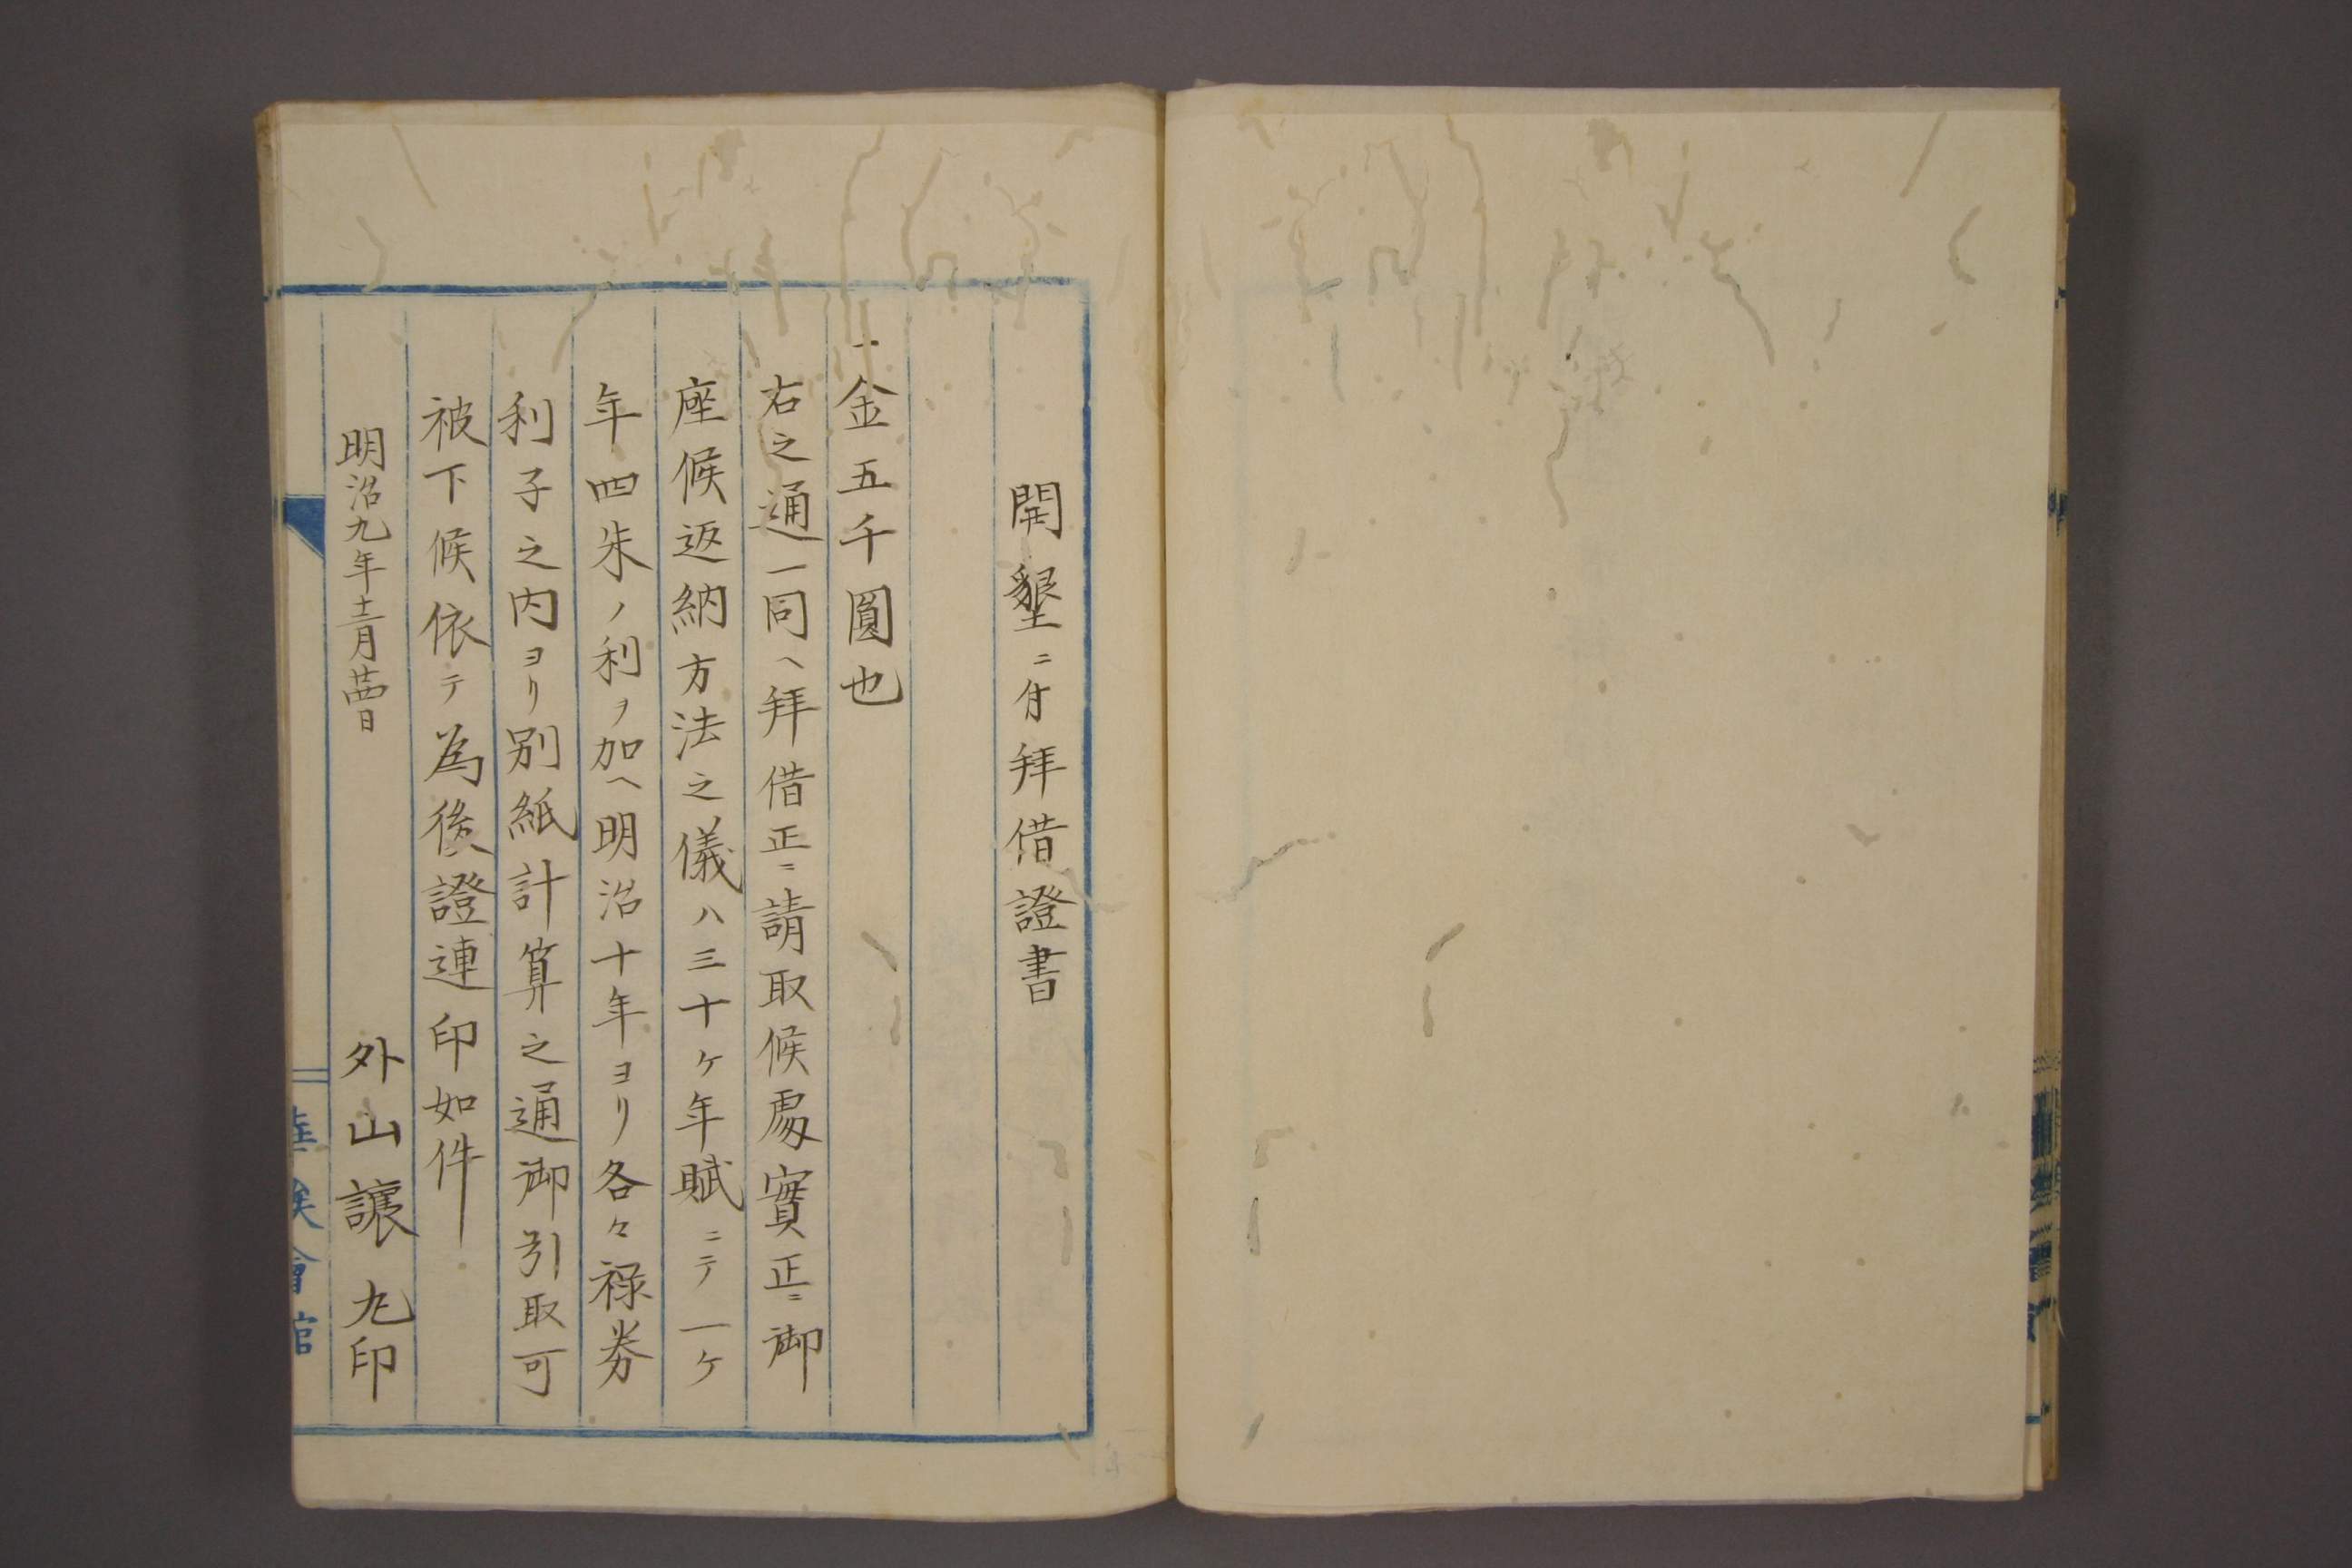 開墾ニ付拝借證書
一金五千圓也
右之通一同ヘ拝借正ニ請取候處實正ニ御
座候返納方法之儀ハ三十ケ年賦ニテ一ケ
年四朱ノ利ヲ加ヘ明治十年ヨリ各々禄券
利子之内ヨリ別紙計算之通御引取可
被下候依テ為後證連印如件
明治九年十二月廿四日
外山譲丸印
華族會館